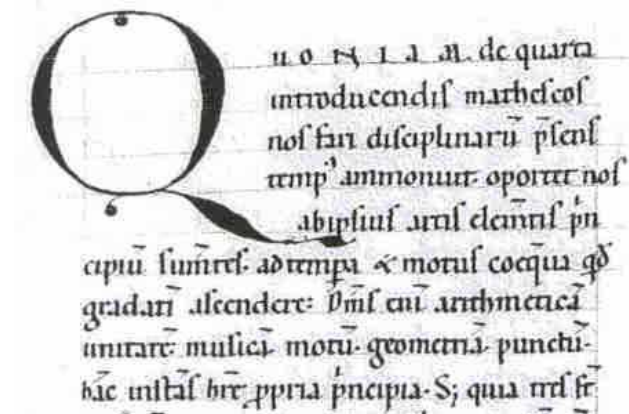 QUONIAM. de quarta
introducendiſ matheſeoſ
noſ fari diſciplinarū p̄ſenſ
temp' ammonuit. oportet noſ
abipſiuſ artiſ elem̄tiſ p̄n
cipiū ſum̄teſ. ad tempꝛa & motuſ coeq̄ua qd̄
gradatī aſcendere: D̄miſ enī arithmeticā
unitatē. muſicā motū. geometriā punctū.
hāc inſtāſ hr̄e ꝓpria p̄ncipia. S; quia treſ ſt̄